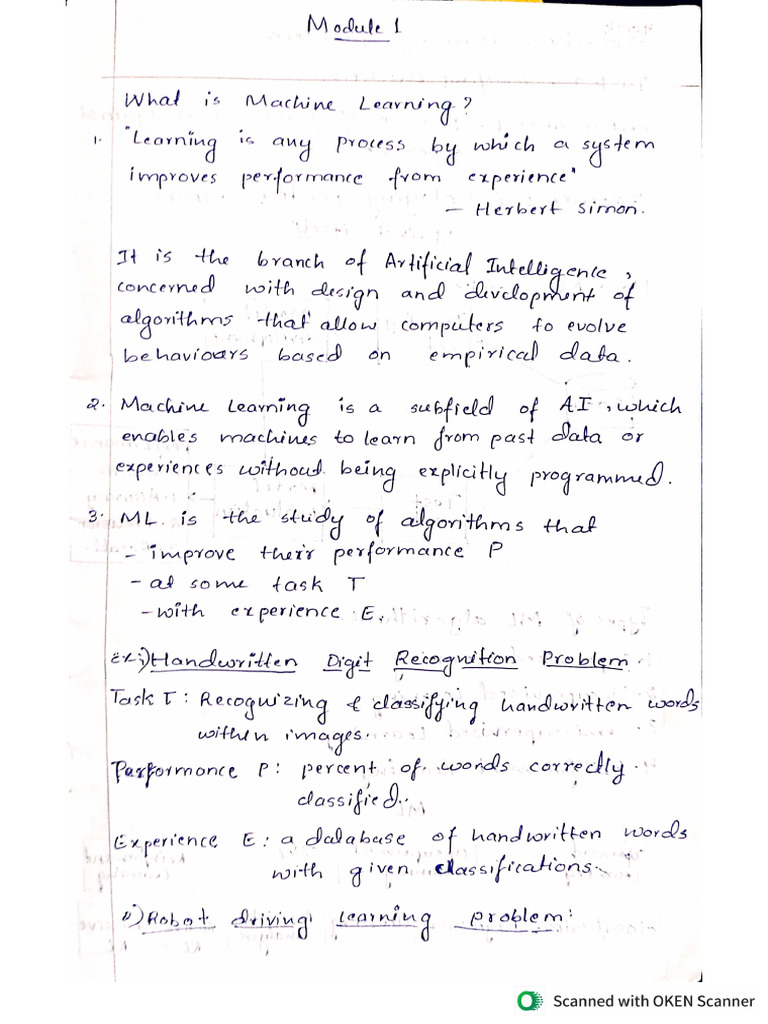 Module 1
What is Machine Learning?
1. "Learning is any process by which a system
improves performance from experience"
- Herbert Simon.
It is the branch of Artificial Intelligence,
concerned with design and development of
algorithms that allow computers to evolve
behaviours based on empirical data.
2. Machine Learning is a subfield of AI, which
enables machines to learn from past data or
experiences without being explicitly programmed.
3. ML is the study of algorithms that
- improve their performance P
- at some task T
- with experience E.
Ex: i) Handwritten Digit Recognition Problem
Task T: Recognizing & classifying handwritten words
within images.
Performance P: percent of words correctly
classified.
Experience E: a database of handwritten words
with given classifications.
ii) Robot driving learning problem:
Scanned with OKEN Scanner